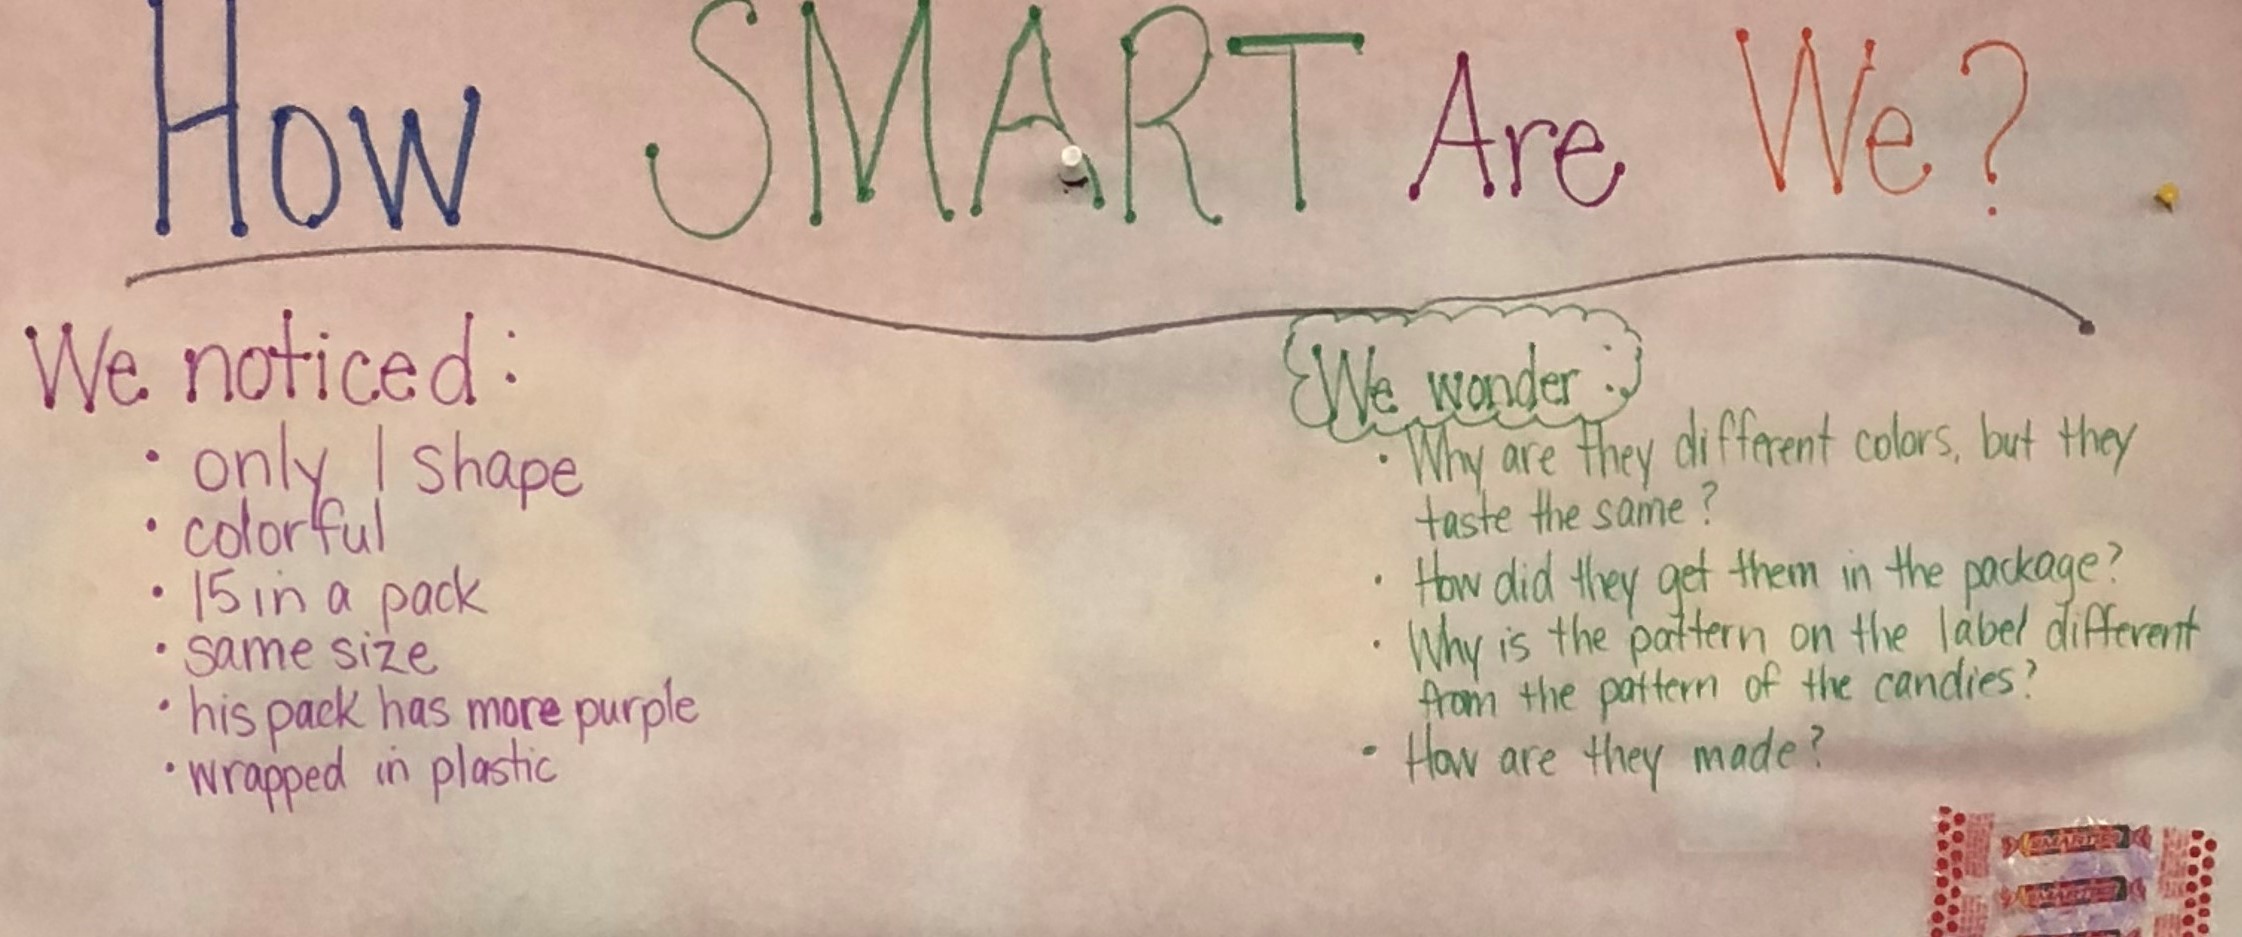 How SMART Are We?
We noticed:
• only 1 shape
• colorful
• 15 in a pack
• same size
• his pack has more purple
• wrapped in plastic
We wonder:
• Why are they different colors, but they
taste the same?
• How did they get them in the package?
• Why is the pattern on the label different
from the pattern of the candies?
• How are they made?
SMARTIES
SMARTIES